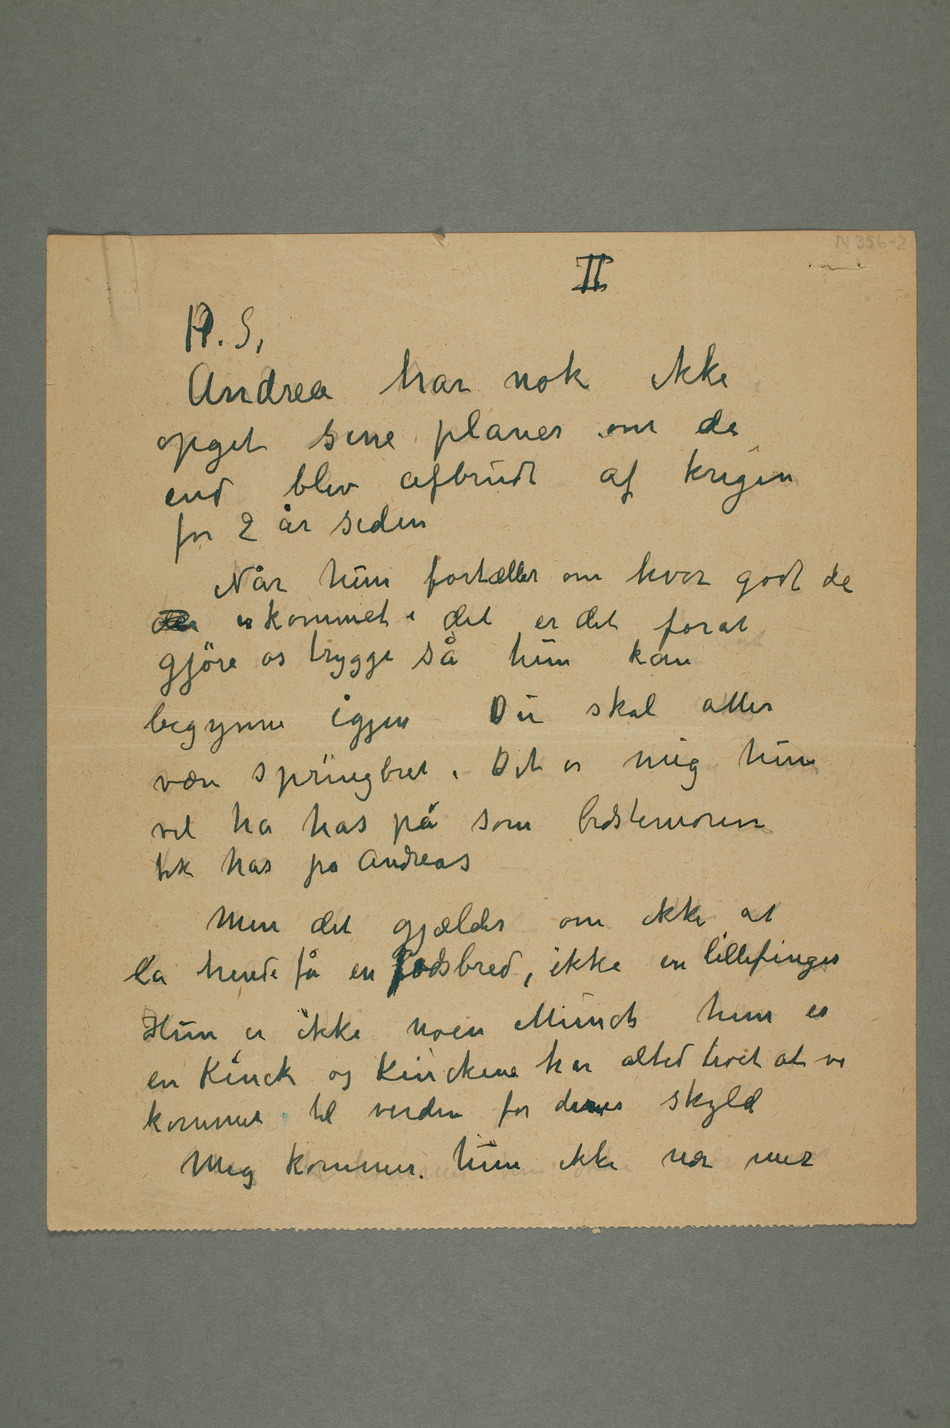 N 356-2
II
P.S,
Andrea har nok ikke
opget sine planer om de
end blev afbrudt af krigen
for 2 år siden
Når hun fortæller om hvor godt de
er kommet i det er det forat
gjöre os trygge så hun kan
begynne igjen Du skal atter
være springbret. Det er mig hun
vil ha has på som bedstemoren
fik has på Andreas
Men det gjælder om ikke at
la hende få en fodsbred, ikke en lillefinger
Hun er ikke noen Munch hun er
en Kinck og Kinckene har altid troet at vi
kommet til verden for deres skyld
Mig kommer hun ikke nær mer